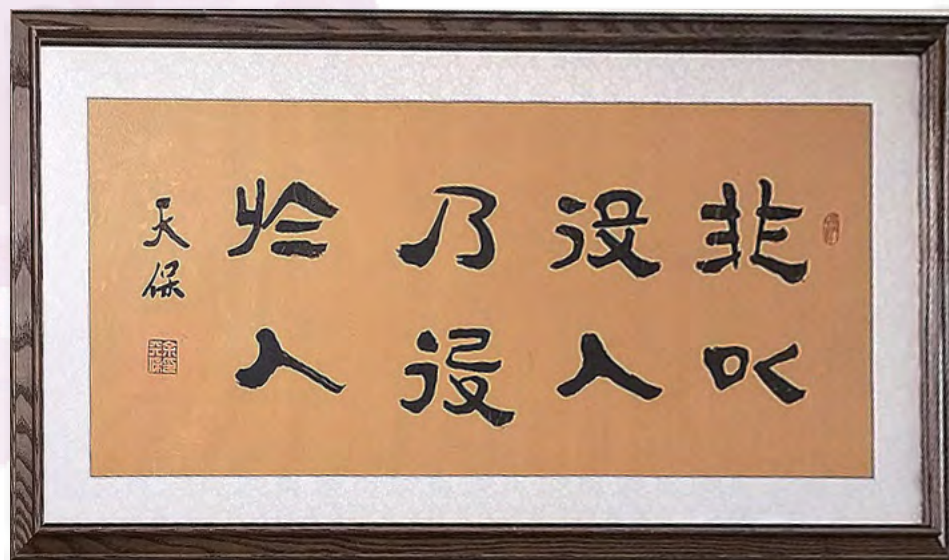 非以
役人
乃役
於人
天保